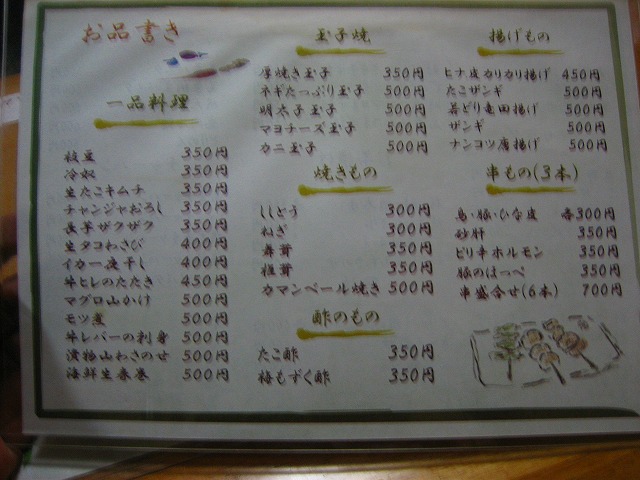 お品書き
一品料理
枝豆 350円
冷奴 350円
生たこキムチ 350円
チャンジャおろし 350円
長芋ザクザク 350円
生タコわさび 400円
イカ一夜干し 400円
牛ヒレのたたき 450円
マグロ山かけ 500円
モツ煮 500円
牛レバーの刺身 500円
漬鮪山わさのせ 500円
海鮮生春巻 500円
玉子焼
厚焼き玉子 350円
ネギたっぷり玉子 500円
明太子玉子 500円
マヨチーズ玉子 500円
カニ玉子 500円
焼きもの
ししとう 300円
ねぎ 300円
舞茸 350円
椎茸 350円
カマンベール焼き 500円
酢のもの
たこ酢 350円
梅もずく酢 350円
揚げもの
ヒナ皮カリカリ揚げ 450円
たこザンギ 500円
若どり竜田揚げ 500円
ザンギ 500円
ナンコツ唐揚げ 500円
串もの(3本)
鳥・豚・ひな皮 各300円
砂肝 350円
ピリ辛ホルモン 350円
豚のほっぺ 350円
串盛合せ(6本) 700円